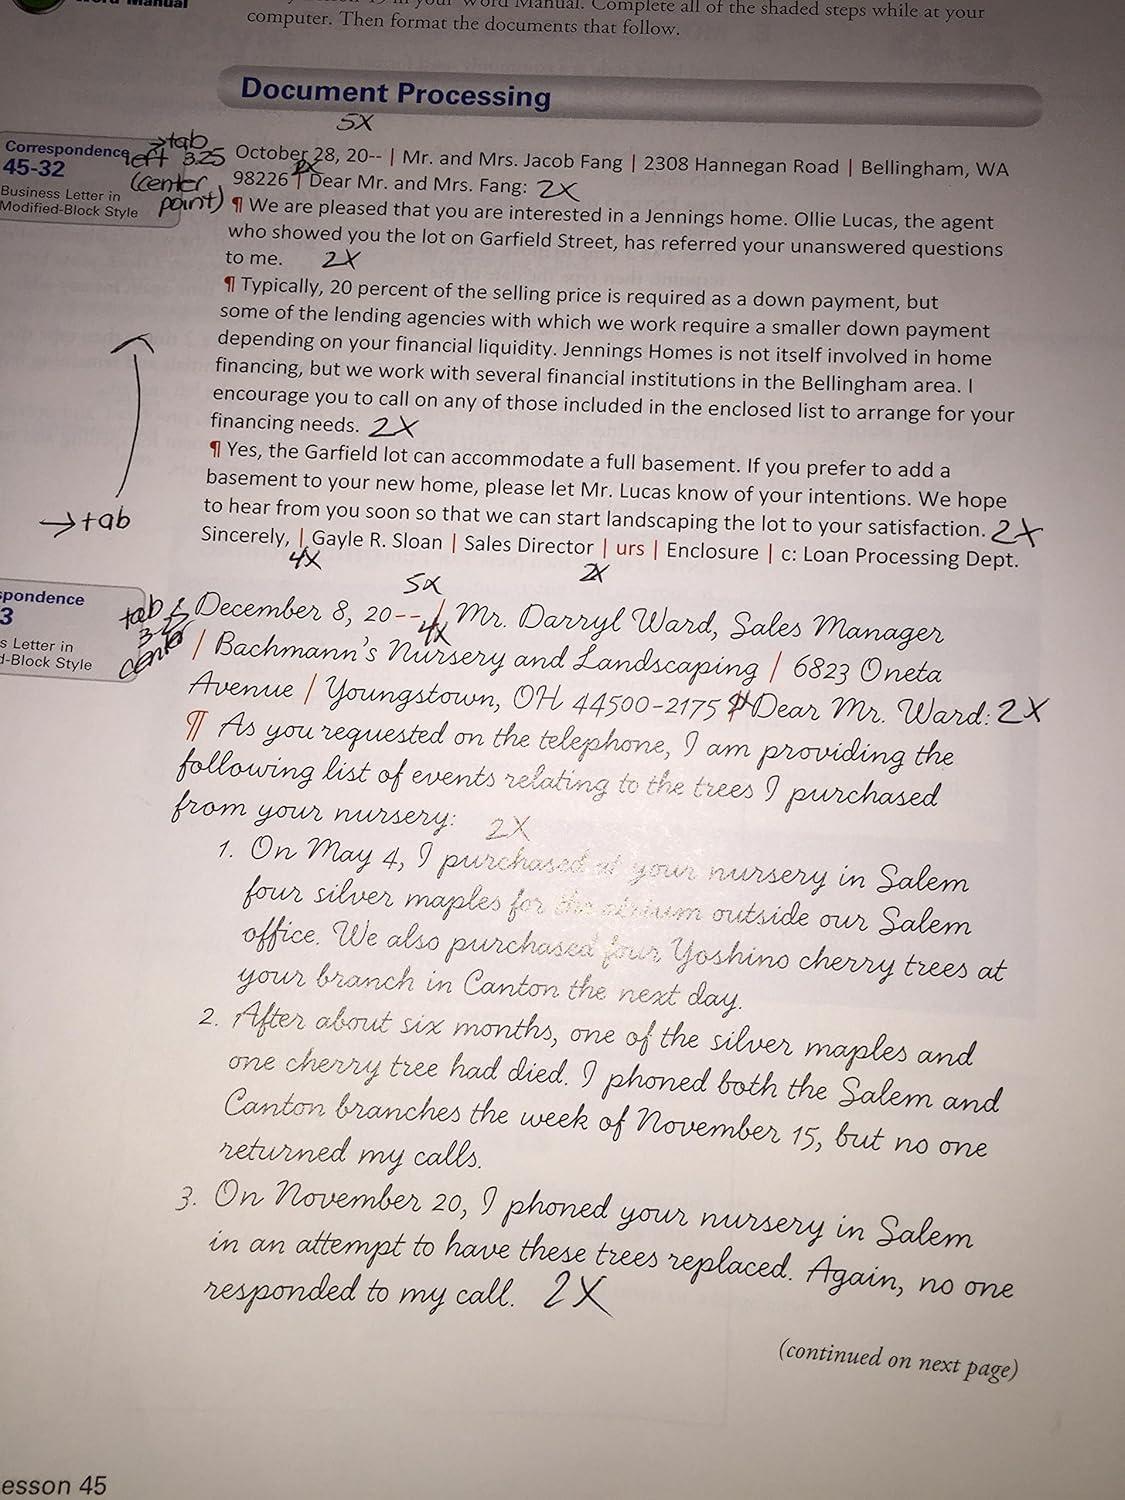 Manual. Complete all of the shaded steps while at your
computer. Then format the documents that follow.
Document Processing
5X
Correspondence
45-32
Business Letter in
Modified-Block Style
→tab
left 3.25
(center
point)
October 28, 20-- | Mr. and Mrs. Jacob Fang | 2308 Hannegan Road | Bellingham, WA
98226 | Dear Mr. and Mrs. Fang: 2X
2x
¶ We are pleased that you are interested in a Jennings home. Ollie Lucas, the agent
who showed you the lot on Garfield Street, has referred your unanswered questions
to me. 2X
¶ Typically, 20 percent of the selling price is required as a down payment, but
some of the lending agencies with which we work require a smaller down payment
depending on your financial liquidity. Jennings Homes is not itself involved in home
financing, but we work with several financial institutions in the Bellingham area. I
encourage you to call on any of those included in the enclosed list to arrange for your
financing needs. 2X
¶ Yes, the Garfield lot can accommodate a full basement. If you prefer to add a
basement to your new home, please let Mr. Lucas know of your intentions. We hope
to hear from you soon so that we can start landscaping the lot to your satisfaction. 2X
→tab
Sincerely, | Gayle R. Sloan | Sales Director | urs | Enclosure | c: Loan Processing Dept.
4X
2X
5X
spondence
3
s Letter in
d-Block Style
tab
3.25
center
December 8, 20-- | Mr. Darryl Ward, Sales Manager
4X
| Bachmann's Nursery and Landscaping | 6823 Oneta
Avenue | Youngstown, OH 44500-2175 | Dear Mr. Ward: 2X
¶ As you requested on the telephone, I am providing the
following list of events relating to the trees I purchased
from your nursery: 2X
1. On May 4, I purchased at your nursery in Salem
four silver maples for the atrium outside our Salem
office. We also purchased four Yoshino cherry trees at
your branch in Canton the next day.
2. After about six months, one of the silver maples and
one cherry tree had died. I phoned both the Salem and
Canton branches the week of November 15, but no one
returned my calls.
3. On November 20, I phoned your nursery in Salem
in an attempt to have these trees replaced. Again, no one
responded to my call. 2X
(continued on next page)
esson 45